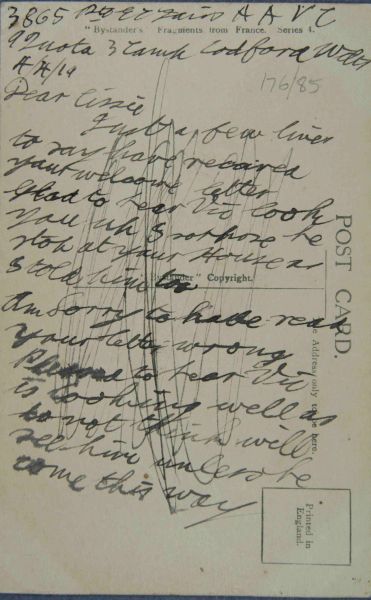 3865 Pte E C Zains A A V C
"Bystander's" Fragments from France. Series 4.
9 Quota 3 Camp Codford Wilts
4/4/19
176/85
Dear Cissie
Just a few lines
to say have received
your welcome letter
glad to hear Vic look
you up I suppose he
stop at your House as
I told him to
"Bystander" Copyright.
Am Sorry to have read
your letter wrong
Pleased to hear Vic
is looking well as
do not think will
see him unless he
come this way
POST CARD.
The Address only to be here.
Printed in
England.